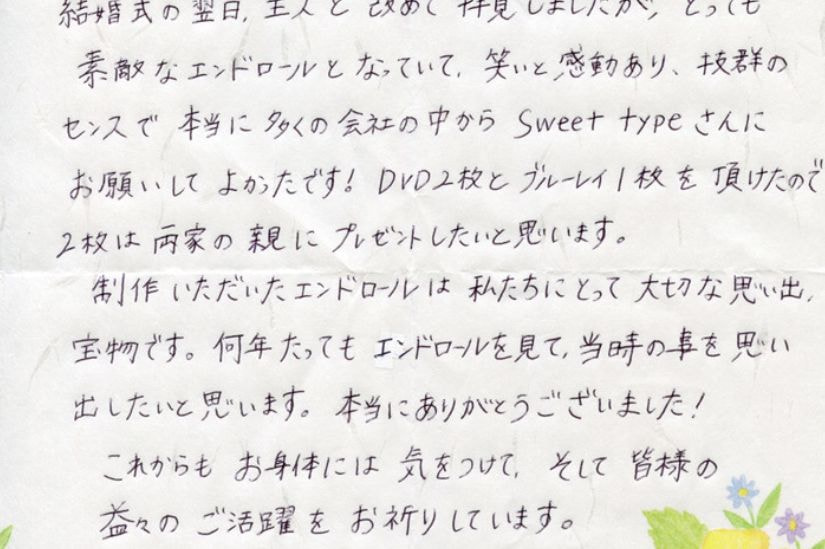 結婚式の翌日、主人と改めて拝見しましたが、とっても
素敵なエンドロールとなっていて、笑いと感動あり、抜群の
センスで本当に多くの会社の中から Sweet type さんに
お願いしてよかったです！DVD2枚とブルーレイ1枚を頂けたので
2枚は両家の親にプレゼントしたいと思います。
制作いただいたエンドロールは私たちにとって大切な思い出、
宝物です。何年たってもエンドロールを見て、当時の事を思い
出したいと思います。本当にありがとうございました！
これからもお身体には気をつけて、そして皆様の
益々のご活躍をお祈りしています。